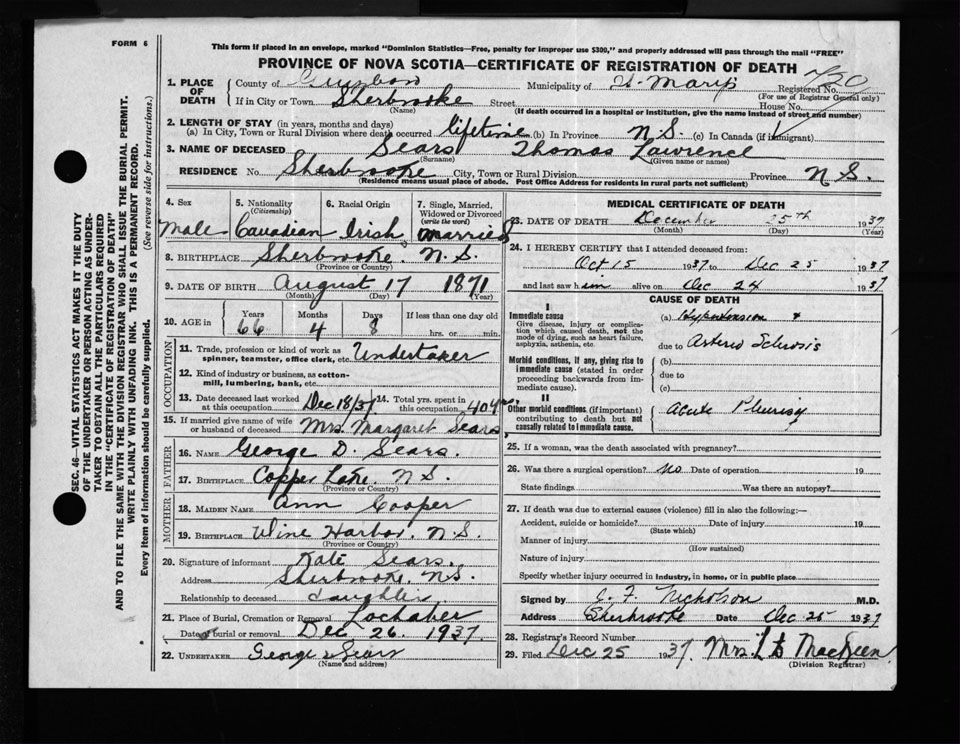 FORM 6
This form if placed in an envelope, marked "Dominion Statistics—Free, penalty for improper use $300," and properly addressed will pass through the mail "FREE"
PROVINCE OF NOVA SCOTIA—CERTIFICATE OF REGISTRATION OF DEATH
1. PLACE OF DEATH County of Municipality of St Marys Registered No. 720
(For use of Registrar General only)
If in City or Town Sherbrooke Street House No.
(Name) (If death occurred in a hospital or institution, give the name instead of street and number)
2. LENGTH OF STAY (in years, months and days)
(a) In City, Town or Rural Division where death occurred lifetime (b) In Province N.S. (c) In Canada (if immigrant)
3. NAME OF DECEASED Sears Thomas Lawrence
(Surname) (Given name or names)
RESIDENCE No. Sherbrooke City, Town or Rural Division Province N S.
(Residence means usual place of abode. Post Office Address for residents in rural parts not sufficient)
4. Sex 5. Nationality (Citizenship) 6. Racial Origin 7. Single, Married, Widowed or Divorced (write the word)
Male Canadian Irish Married
8. BIRTHPLACE Sherbrooke. N.S.
(Province or Country)
9. DATE OF BIRTH August 17 1871
(Month) (Day) (Year)
10. AGE in Years Months Days If less than one day old
66 4 8 hrs. or min.
OCCUPATION
11. Trade, profession or kind of work as spinner, teamster, office clerk, etc. Undertaker
12. Kind of industry or business, as cotton-mill, lumbering, bank, etc.
13. Date deceased last worked at this occupation Dec 18/37 14. Total yrs. spent in this occupation 40 yrs.
15. If married give name of wife or husband of deceased Mrs. Margaret Sears
FATHER
16. NAME George D. Sears.
17. BIRTHPLACE Copper Lake. N.S.
(Province or Country)
MOTHER
18. MAIDEN NAME Ann Cooper
19. BIRTHPLACE Wine Harbor, N.S.
(Province or Country)
20. Signature of informant Kate Sears.
Address Sherbrooke, N.S.
Relationship to deceased daughter
21. Place of Burial, Cremation or Removal Lochaber
Date of burial or removal Dec 26. 1937.
22. UNDERTAKER George Sears
(Name and address)
MEDICAL CERTIFICATE OF DEATH
23. DATE OF DEATH December 25th 1937
(Month) (Day) (Year)
24. I HEREBY CERTIFY that I attended deceased from:
Oct 15 1937 to Dec 25 1937
and last saw him alive on Dec 24 1937
CAUSE OF DEATH
I
Immediate cause
Give disease, injury or complication which caused death, not the mode of dying, such as heart failure, asphyxia, asthenia, etc.
(a) Hypertension &
due to Arterio Sclerosis
Morbid conditions, if any, giving rise to immediate cause (stated in order proceeding backwards from immediate cause).
(b)
due to
(c)
II
Other morbid conditions (if important) contributing to death but not causally related to immediate cause.
Acute Pleurisy
25. If a woman, was the death associated with pregnancy?
26. Was there a surgical operation? No Date of operation 19
State findings Was there an autopsy?
27. If death was due to external causes (violence) fill in also the following:—
Accident, suicide or homicide? Date of injury 19
(State which)
Manner of injury
(How sustained)
Nature of injury
Specify whether injury occurred in industry, in home, or in public place
Signed by J. F. Nicholson M.D.
Address Sherbrooke Date Dec 25 1937
28. Registrar's Record Number
29. Filed Dec 25 1937. Mrs. MacKeen
(Division Registrar)
SEC. 46—VITAL STATISTICS ACT MAKES IT THE DUTY
OF THE UNDERTAKER OR PERSON ACTING AS UNDER-
TAKER TO OBTAIN ALL THE PARTICULARS REQUIRED
IN THE "CERTIFICATE OF REGISTRATION OF DEATH"
AND TO FILE THE SAME WITH THE DIVISION REGISTRAR WHO SHALL ISSUE THE BURIAL PERMIT.
WRITE PLAINLY WITH UNFADING INK. THIS IS A PERMANENT RECORD.
Every item of information should be carefully supplied. (See reverse side for instructions.)